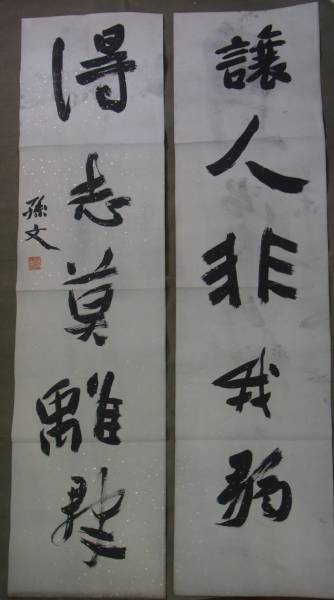 讓人非我弱
得志莫離群
孫文